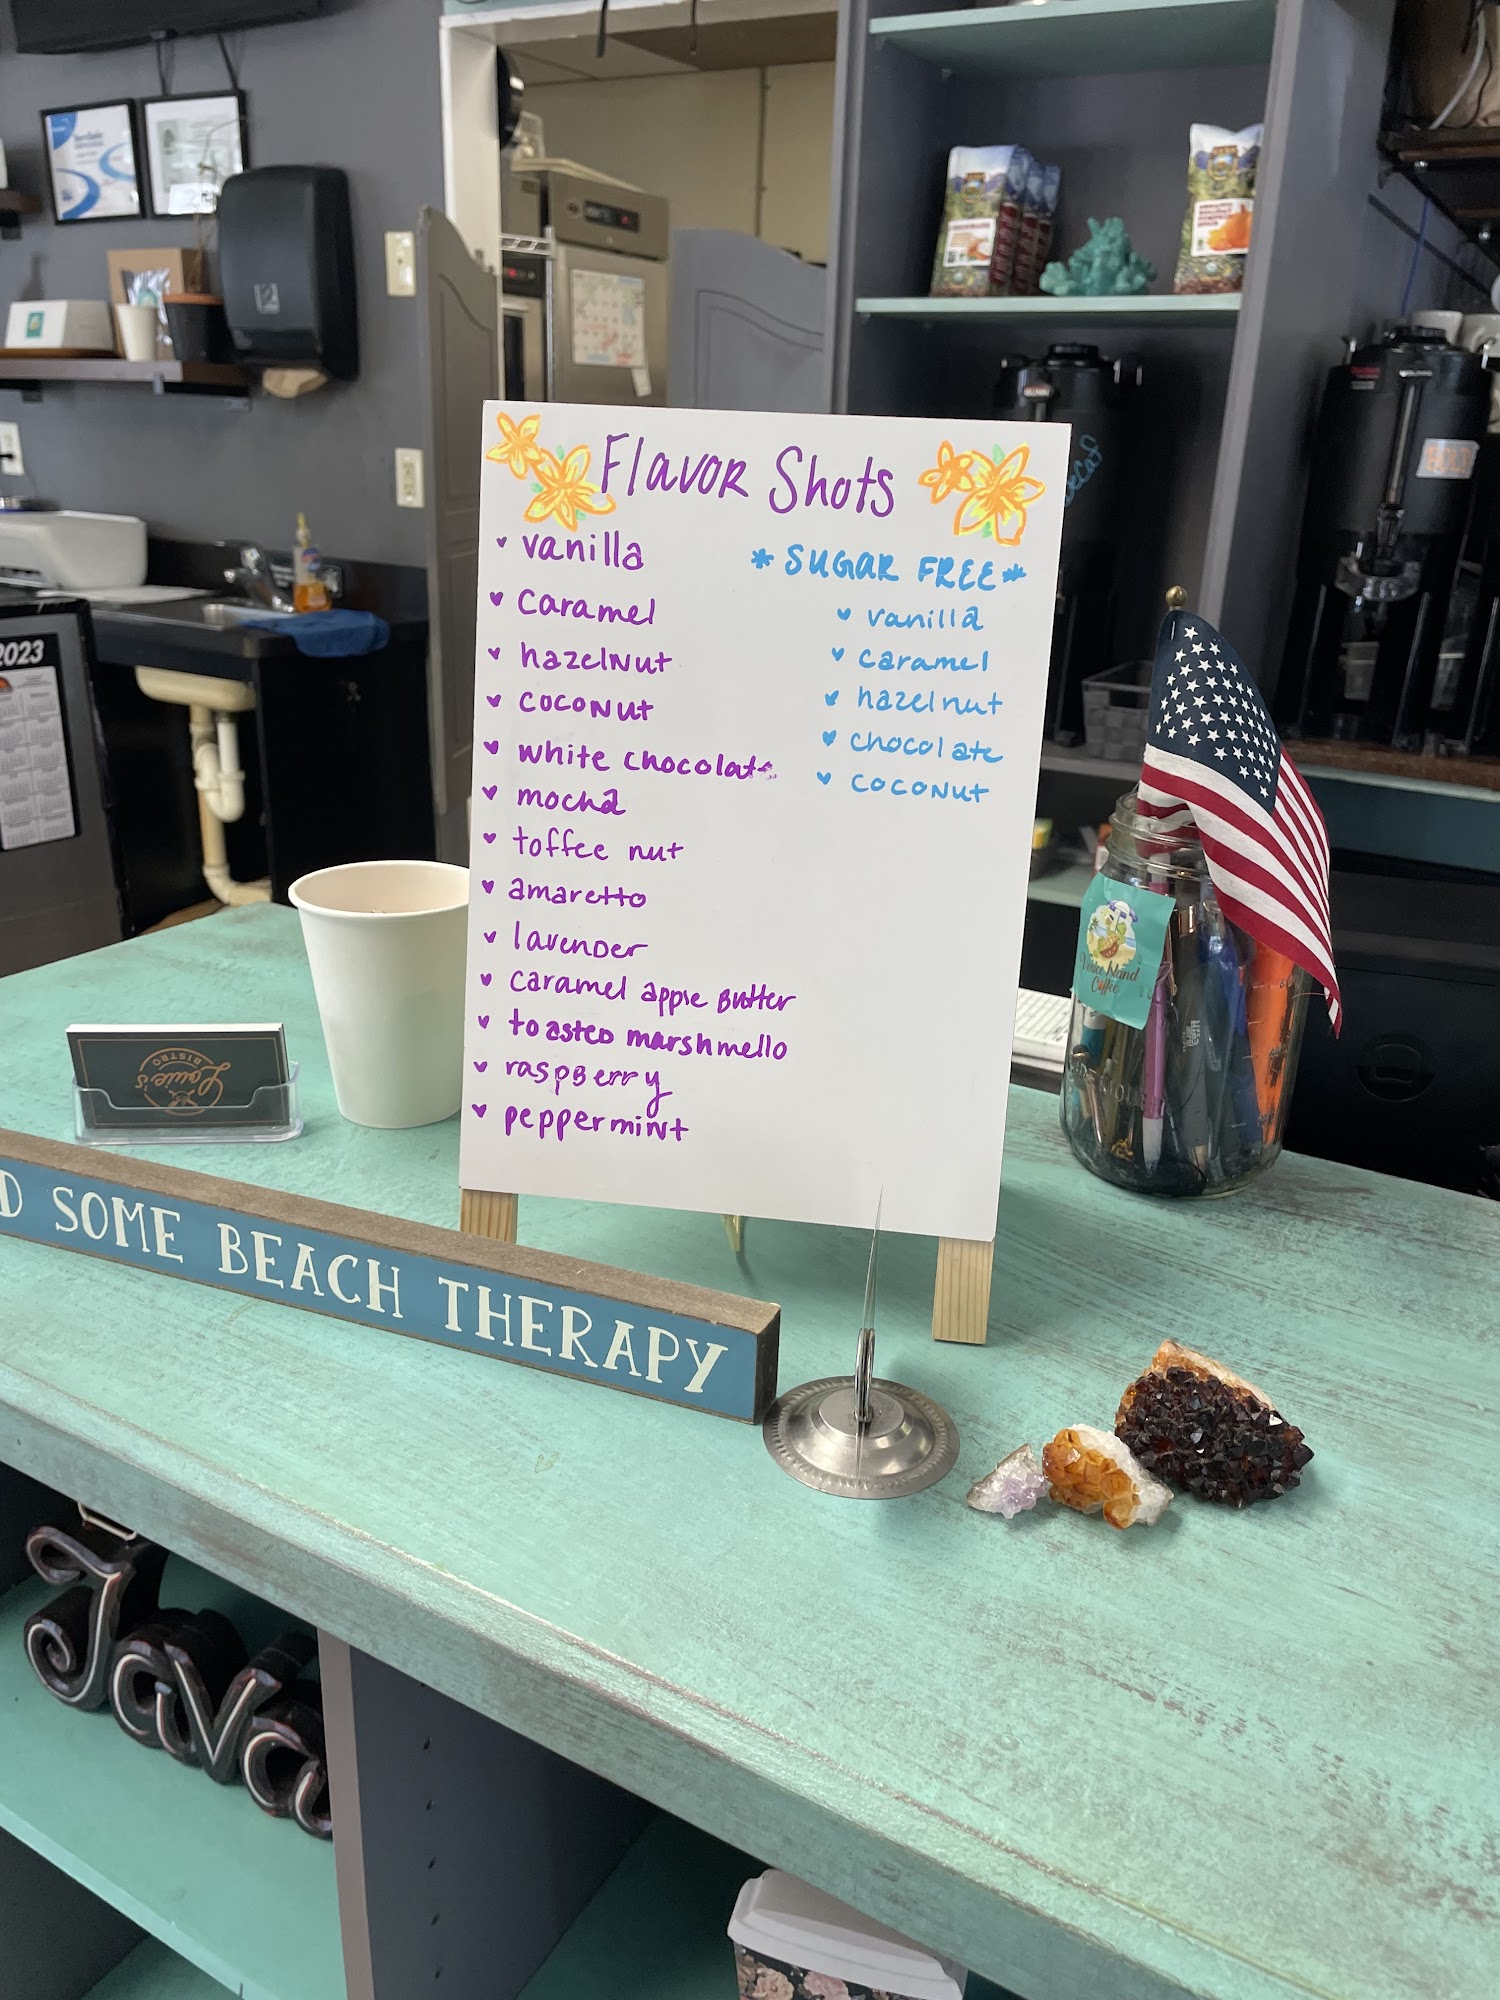 Flavor Shots
vanilla
caramel
hazelnut
coconut
white chocolate
mocha
toffee nut
amaretto
lavender
caramel apple butter
toasted marshmello
raspberry
peppermint
* SUGAR FREE *
vanilla
caramel
hazelnut
chocolate
coconut
2023
Decaf
Louie's
BISTRO
Vintee Island
Coffee
D SOME BEACH THERAPY
Java